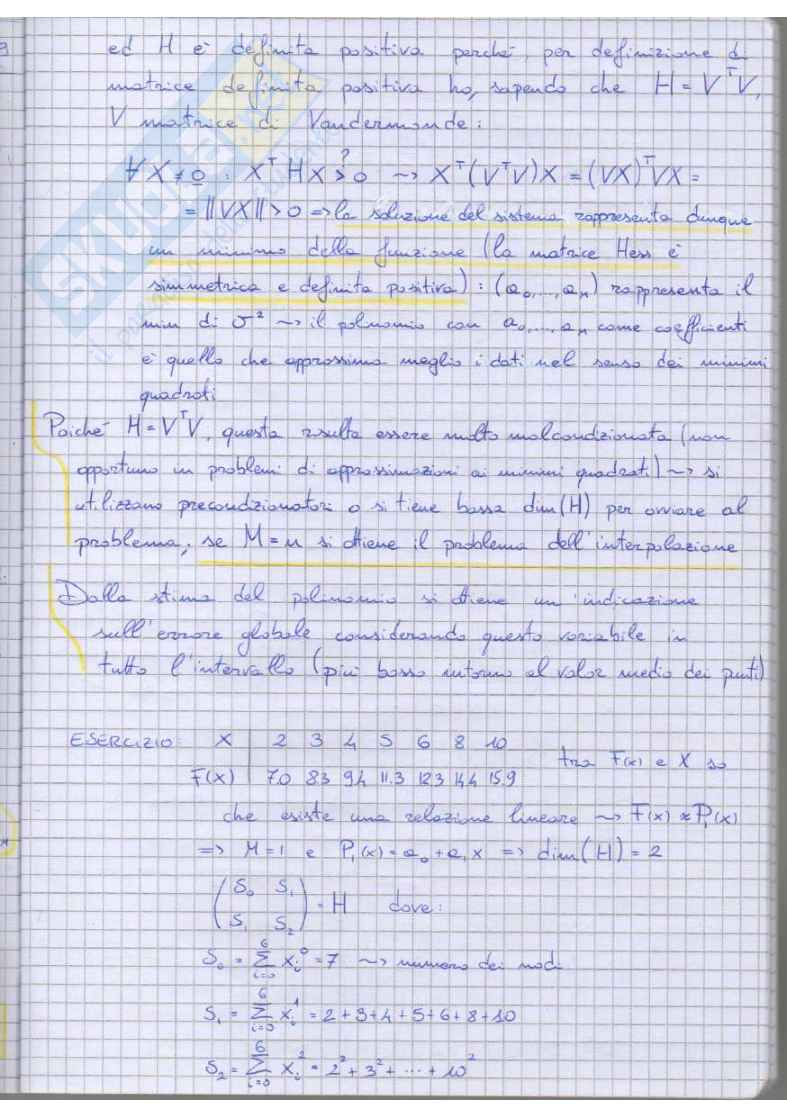 ed H è definita positiva perché, per definizione di
matrice definita positiva ho, sapendo che H = VᵀV,
V matrice di Vandermonde:
∀ X ≠ 0 : Xᵀ H X >? 0 ~> Xᵀ(VᵀV)X = (VX)ᵀVX =
= ||VX|| > 0 => la soluzione del sistema rappresenta dunque
un minimo della funzione (la matrice Hess è
simmetrica e definita positiva) : (a₀,...,aₙ) rappresenta il
min di σ² ~> il polinomio con a₀,...,aₙ come coefficienti
è quello che approssima meglio i dati nel senso dei minimi
quadrati
Poiché H = VᵀV, questa risulta essere molto malcondizionata (non
opportuno in problemi di approssimazioni ai minimi quadrati) ~> si
utilizzano precondizionatori o si tiene bassa dim(H) per ovviare al
problema; se M = n si ottiene il problema dell'interpolazione
Dalla stima del polinomio si ottiene un'indicazione
sull'errore globale considerando questo variabile in
tutto l'intervallo (più basso intorno al valor medio dei punti)
ESERCIZIO: X | 2 3 4 5 6 8 10
F(x) | 7.0 8.3 9.4 11.3 12.3 14.4 15.9 tra F(x) e X so
che esiste una relazione lineare ~> F(x) ≈ P₁(x)
=> M = 1 e P₁(x) = a₀ + a₁x => dim(H) = 2
(S₀ S₁
S₁ S₂) = H dove:
S₀ = Σᵢ₌₀⁶ xᵢ⁰ = 7 ~> numero dei nodi
S₁ = Σᵢ₌₀⁶ xᵢ¹ = 2+3+4+5+6+8+10
S₂ = Σᵢ₌₀⁶ xᵢ² = 2² + 3² + ... + 10²